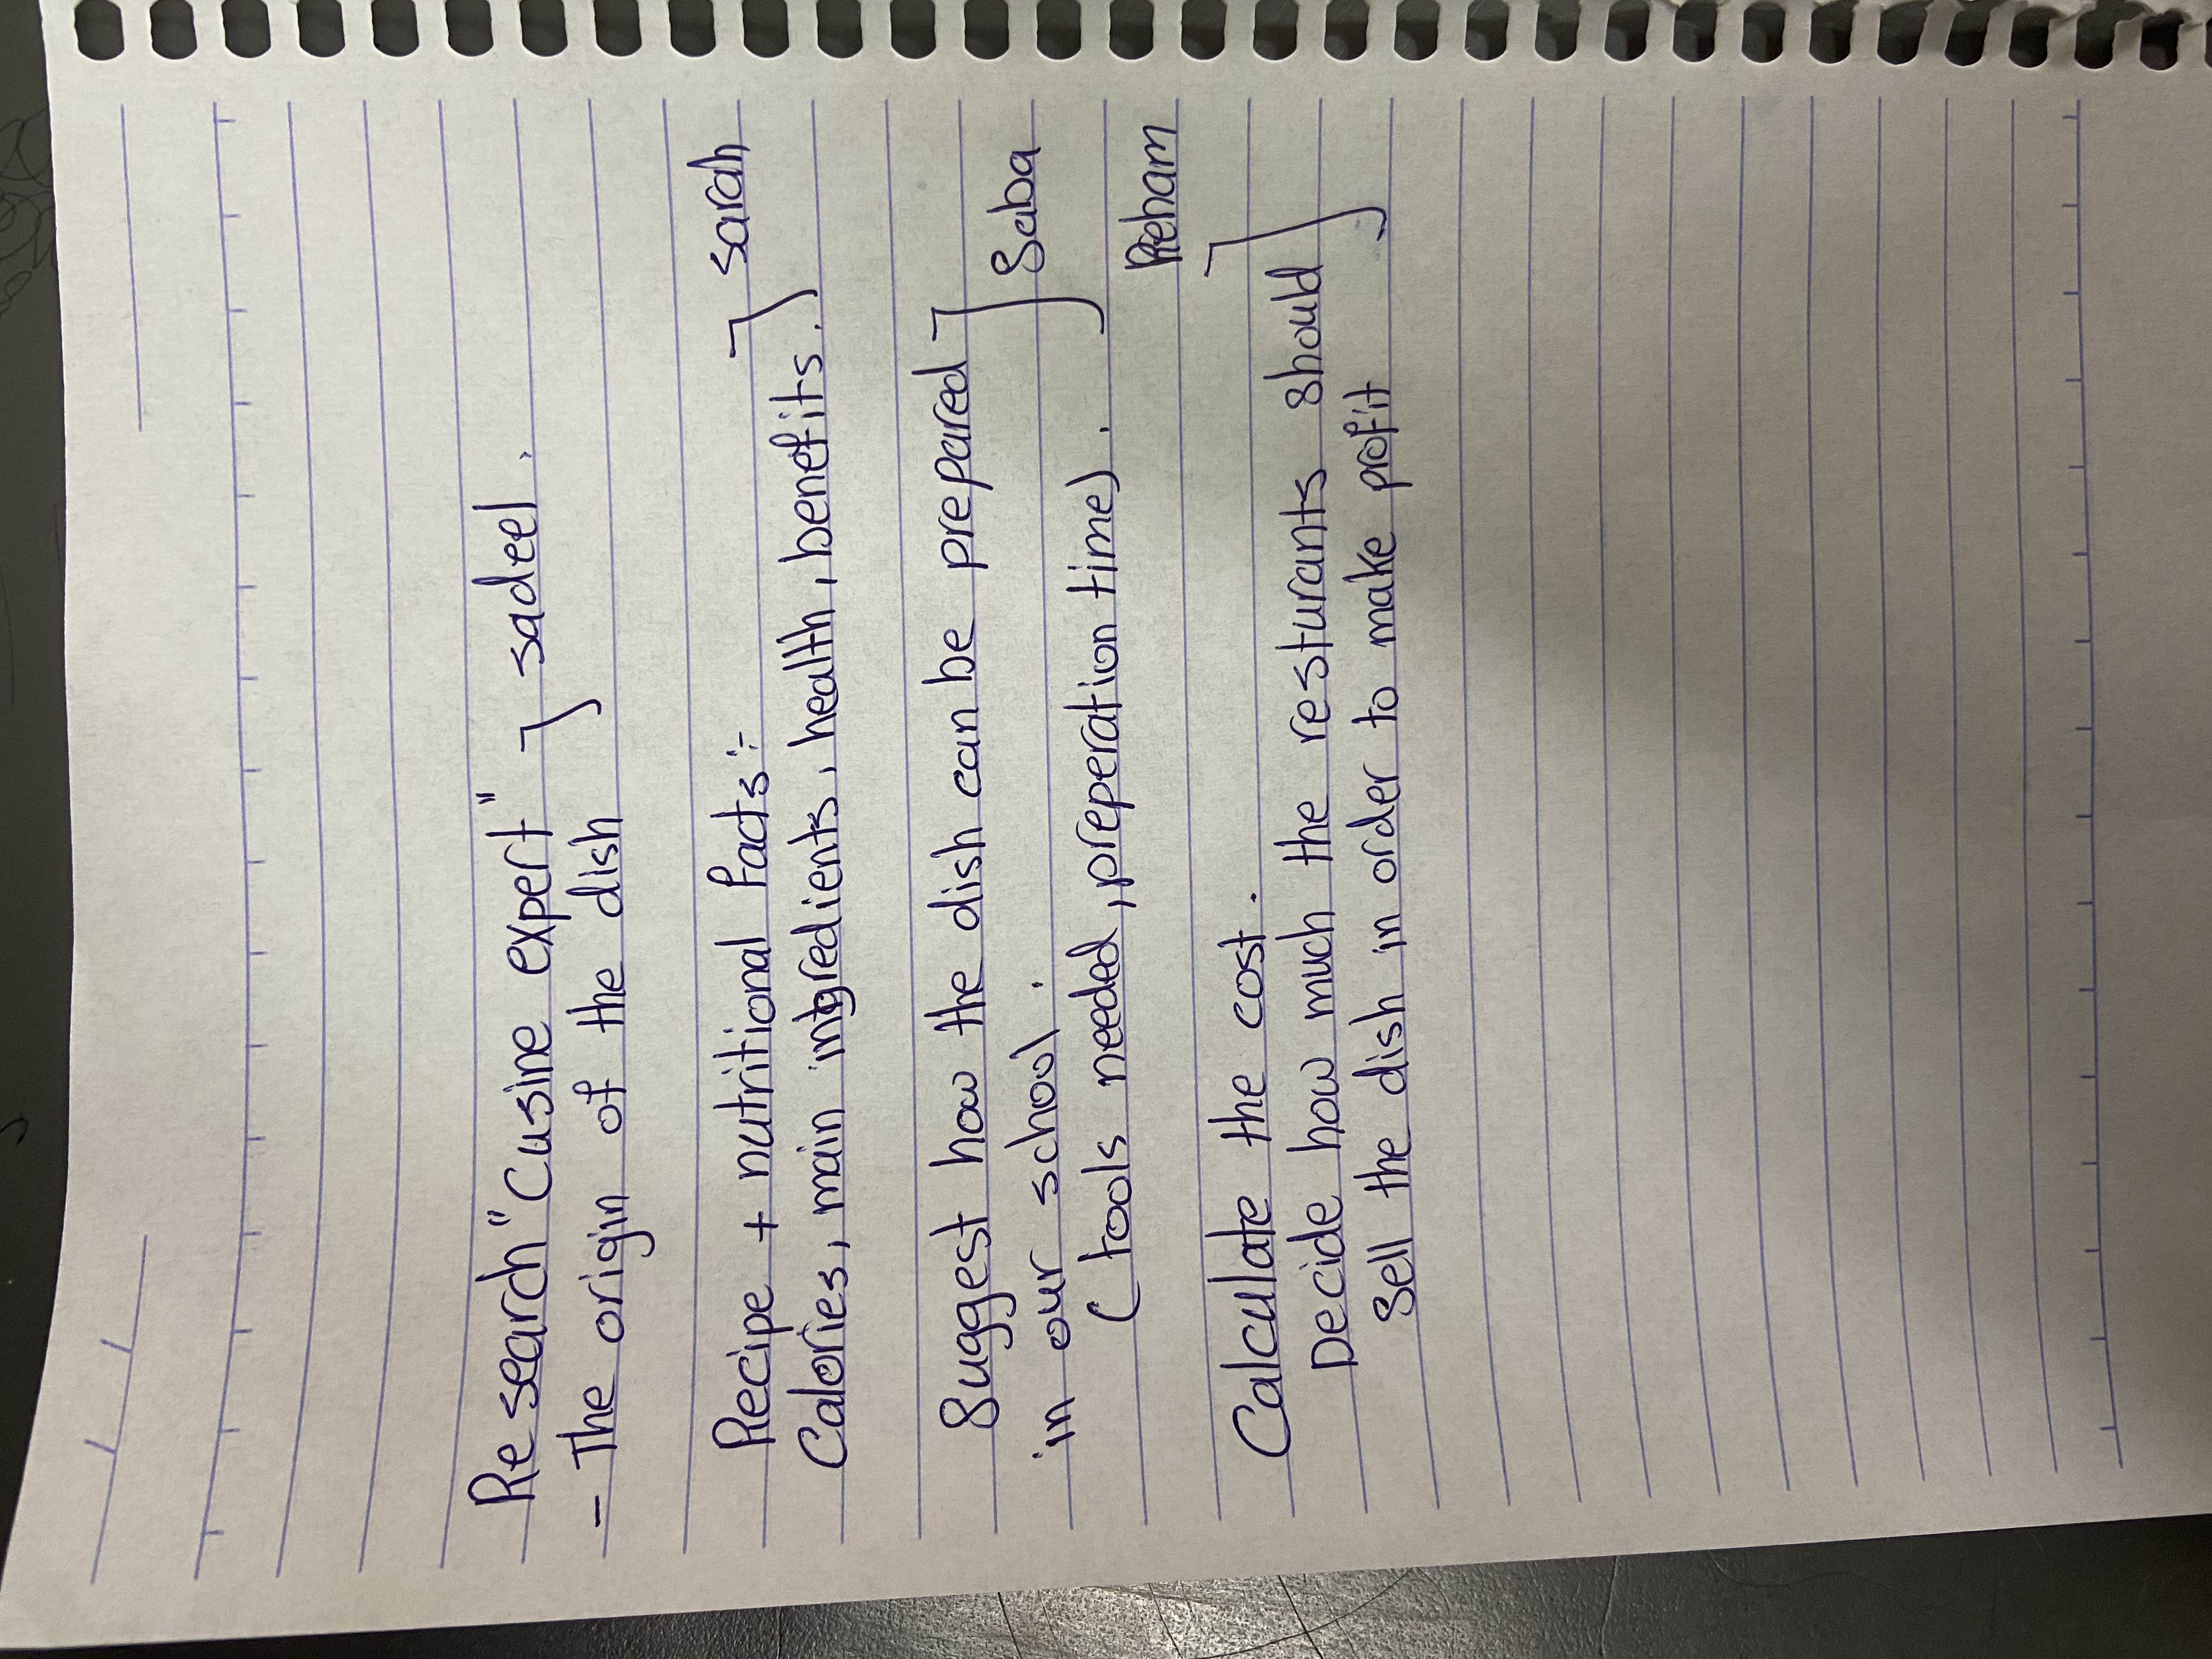 Research "Cusine expert" sadeel.
- The origin of the dish
Recipe + nutritional facts:- sarah
Calories, main intgredients, health, benefits.
Suggest how the dish can be prepared
in our school. Saba
(tools needed, preperation time).
Reham
Calculate the cost.
Decide how much the resturants should
Sell the dish in order to make profit